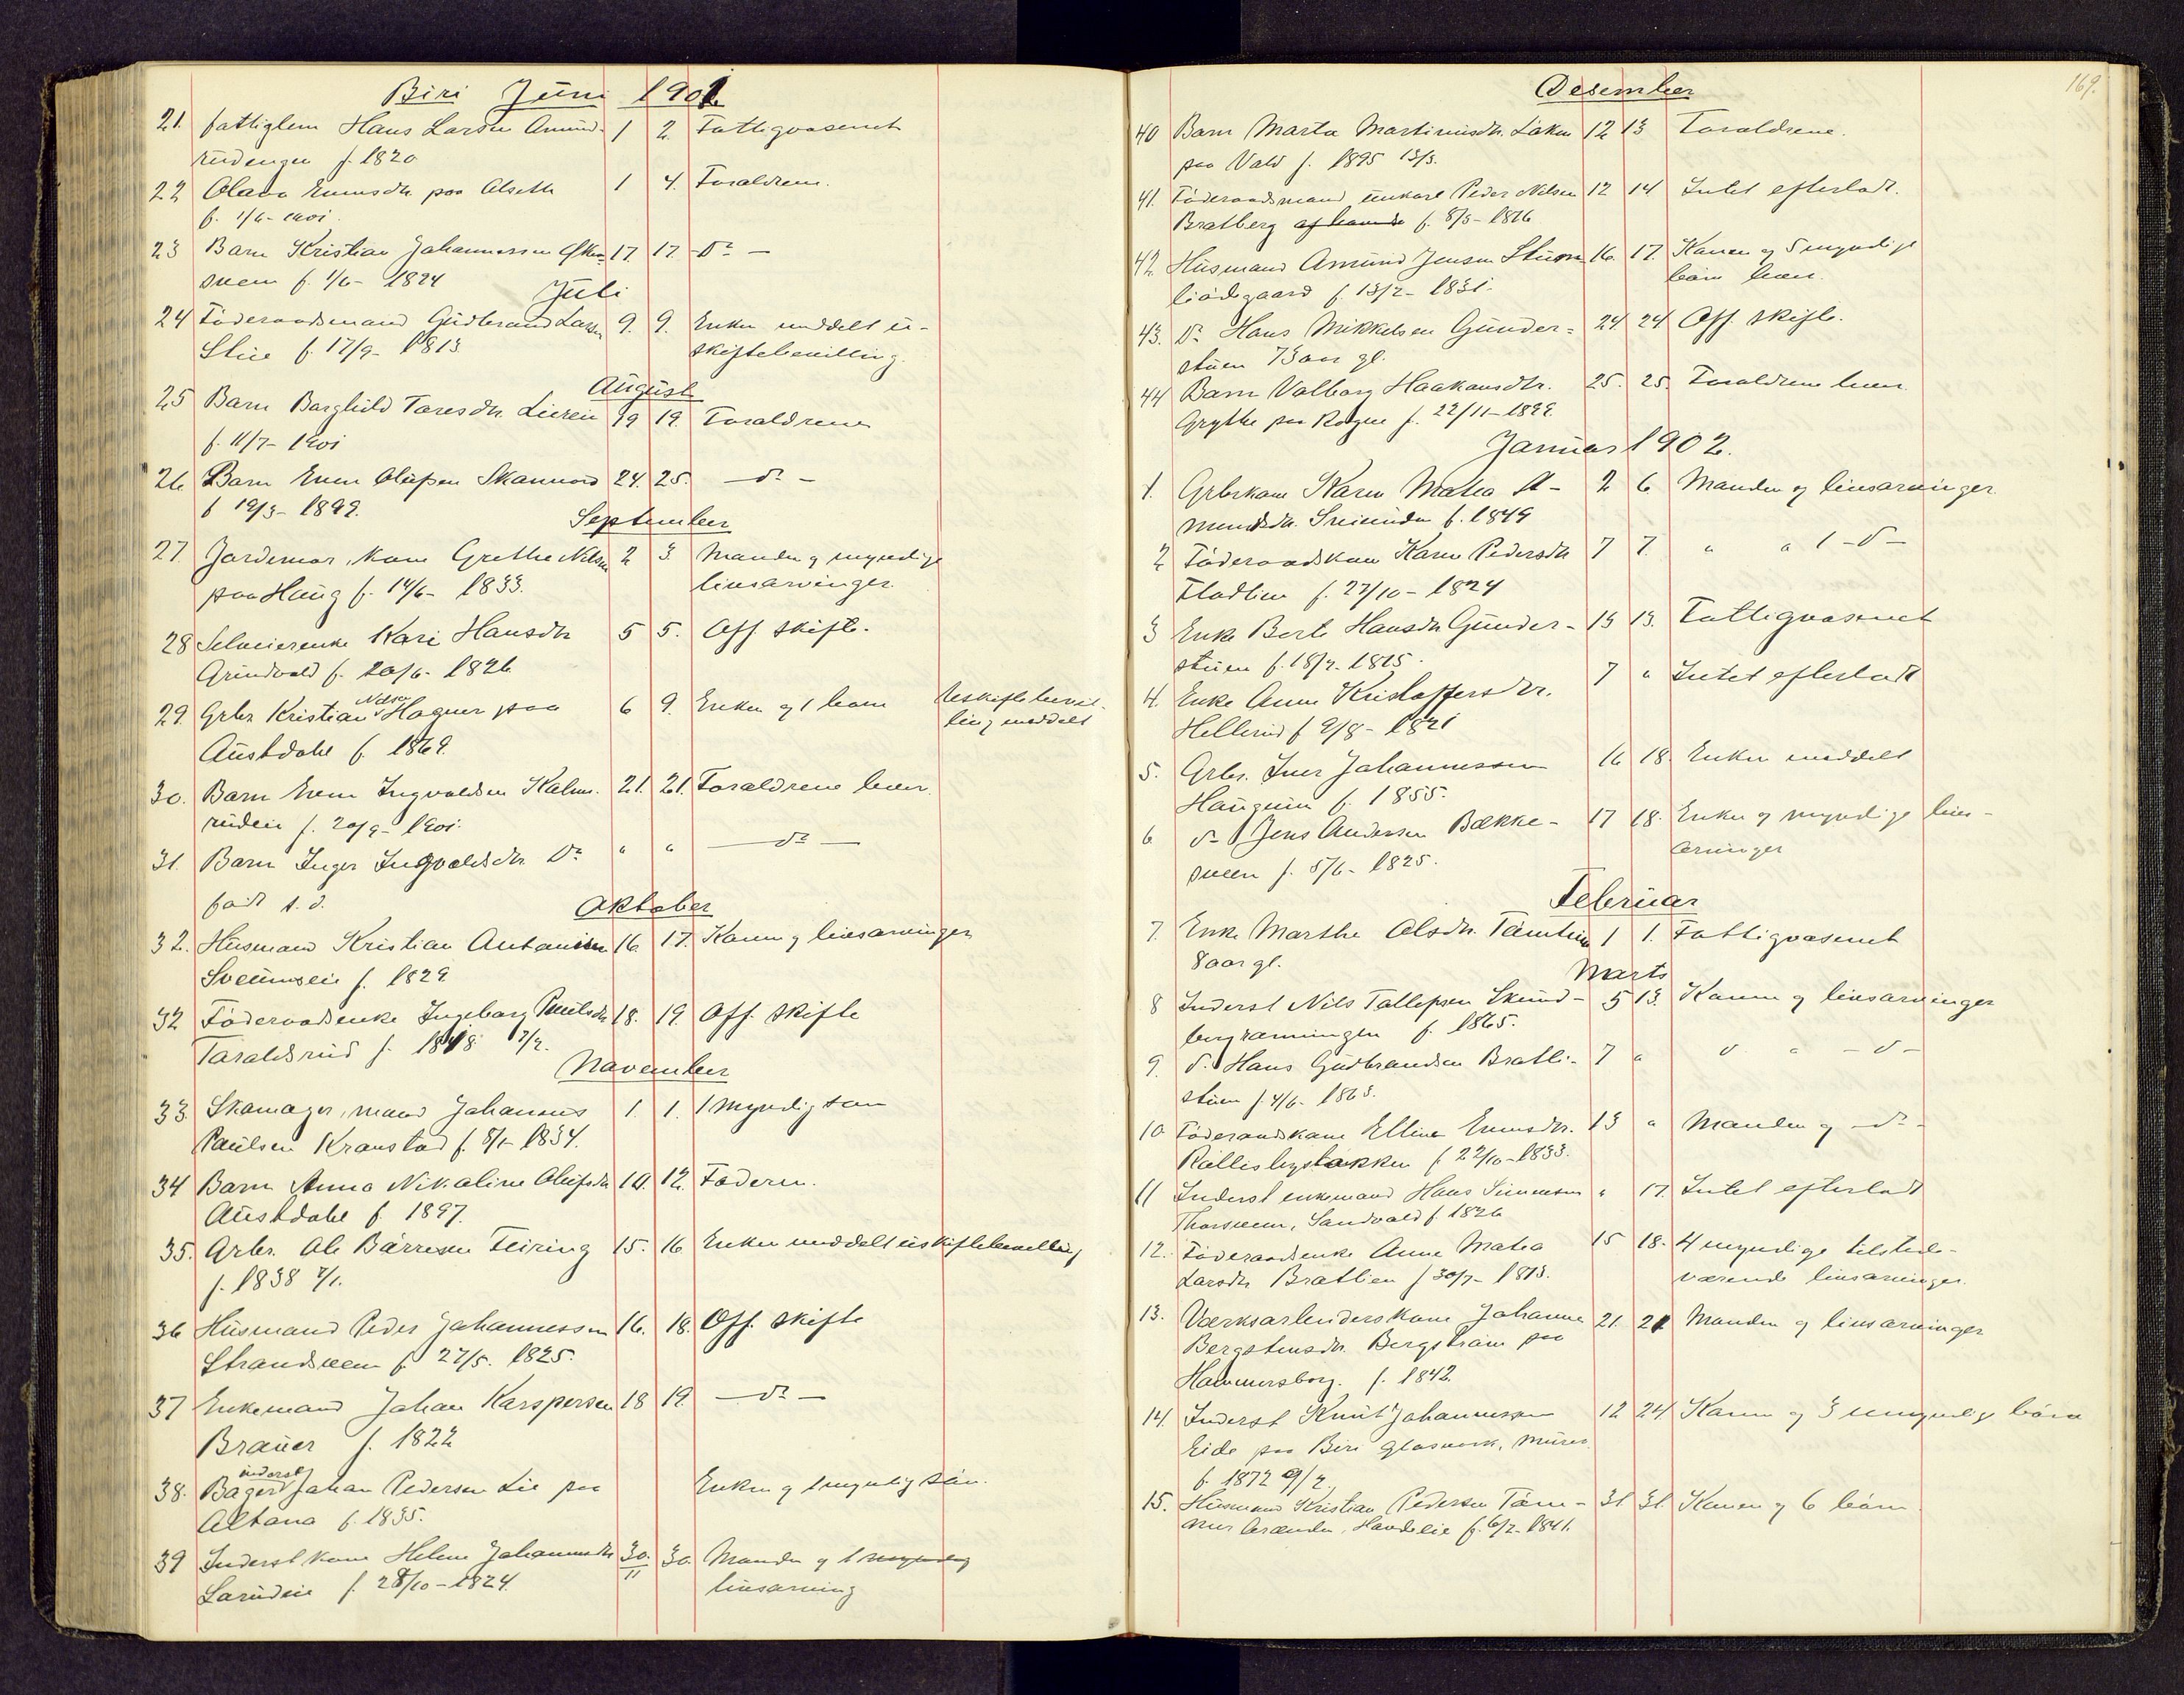 Biri Juni 1901
21. fattiglem Hans Larsen Amund- 1 2. Fattigvæsenet
rudengen f. 1820
22 Olava Evensdtr. paa Alseth 1 4. Forældrene.
f. 1/6- 1901.
23 Barn Kristian Johannessen 17. 17. Do —
sveen f. 1/6- 1824
Juli
24 Föderaadsmand Gudbrand Larsen 9. 9. Enken meddelt u-
Stue f. 17/9- 1813 skiftebevilling.
August
25 Barn Borghild Taresdtr. Lieeie 19 19. Forældrene
f. 11/7- 1901
26 Barn Even Olufsen Skannord 24. 25. — do —
f 19/3- 1899.
September
27. Jordemor, kone Grethe Nilsen 2 3. Manden og myndige
paa Haug f. 14/6- 1833. livsarvinger.
28 Selveierenke Kari Hansdtr 5 5. Off. skifte.
Grundvold f. 20/6- 1826
29. Grbr Kristian Nilsen Hagner paa 6 9. Enken og 1 barn Uskiftebevil-
Austdahl f. 1869. ling meddelt
30. Barn Even Ingvaldsen Kalve- 21. 21. Forældrene lever.
rudeie f. 20/9- 1901.
31. Barn Inger Ingvaldsdtr. Do " " — do —
født s. d.
Oktober
32. Husmand Kristian Antonisen 16. 17. Konen og livsarvinger
Sveumseie f. 1829
32 Föderaadsenke Ingeborg Paulsdtr 18. 19. Off. skifte
Taraldsrud f. 1818 7/2.
November
33. Skomager, mand Johannes 1. 1. 1 myndig søn
Paulsen Kranstad f. 8/1- 1834.
34 Barn Anna Nikoline Olufsdtr 10. 12. Faderen.
Austdahl f. 1897.
35. Grbr. Ole Börresen Feiring 15. 16. Enken meddelt uskiftebevilling
f. 1838 2/1.
36 Husmand Peder Johannessen 16. 18. Off. skifte
Strandsveen f. 27/5. 1825.
37 Enkemand Johan Karspersen 18 19. — do —
Brauer f. 1822
38. Bager inderst Johan Pedersen Lie paa Enken og 1 myndig søn.
Altona f. 1835.
39 Inderst kone Helene Johannesdtr 30./11 30. Manden og 1 myndig
Larudeie f. 28/10- 1824. livsarving
Desember 169.
40 Barn Marta Martinusdtr. Løken 12 13 Forældrene.
paa Vald f. 1895 13/3.
41. Föderaadsmand, unkarl Peder Nilsen 12 14. Intet efterladt.
Bratberg f. 8/5- 1816
42. Husmand Amund Jensen Stum- 16. 17. Konen og 5 myndige
liødegaard f. 13/2- 1831. børn lever.
43. Do Hans Mikkelsen Gunder- 24 24 Off. skifte.
stuen 73 aar gl.
44 Barn Valborg Haakonsdtr. 25. 25. Forældrene lever
Grythe paa Rogne f. 22/11- 1899.
Januar 1902.
1. Grbrkone Karen Mathea A- 2 6 Manden og livsarvinger.
mundsdtr. Sneiunden f. 1849
2 Föderaadskone Karen Pedersdtr 7 7. " " 1 - do -
Fladlien f. 27/10- 1824
3 Enke Berte Hansdtr Gunder- 13 13. Fattigvæsenet
stuen f. 18/7. 1815.
4. Enke Anne Kristoffersdtr. 7 " Intet efterladt
Hellerud f 9/8- 1821
5. Grbr. Iver Johannessen 16 18. Enken meddelt
Hauguim f. 1855.
6 do Jens Andersen Bække- 17 18. Enken og myndige livs-
sveen f. 5/6- 1825. arvinger
Februar
7. Enke Marthe Olsdtr. Tömten 1 1. Fattigvæsenet
8 aar gl.
Marts
8 Inderst Nils Tollefsen Skund- 5 13. Konen og livsarvinger
bergramningen f. 1865.
9. do Hans Gudbrandsen Bratli- 7 " do " — do —
stuen f. 4/6- 1863.
10 Föderaadskone Elline Evensdtr. 13 " Manden og — do -
Rallislyststøkken f. 22/10- 1833.
11 Inderst enkemand Hans Simensen " 17. Intet efterladt
Thorsveen, Sandvold f. 1826
12. Föderaadsenke Anne Mathea 15 18. 4 myndige tilstede-
Larsdtr Bratlien f. 30/7- 1813. værende livsarvinger.
13. Værksarbeiderskone Johanne 21. 21 Manden og livsarvinger
Bergstensdtr. Bergstrøm paa
Hammersborg. f. 1842.
14. Inderst Knut Johannessen 12 24 Konen og 3 umyndige børn
Eide paa Biri glasværk, murer.
f. 1872 9/2.
15. Husmand Kristian Pedersen Töm- 31. 31. Konen og 6 børn
mer f. 6/2- 1841.